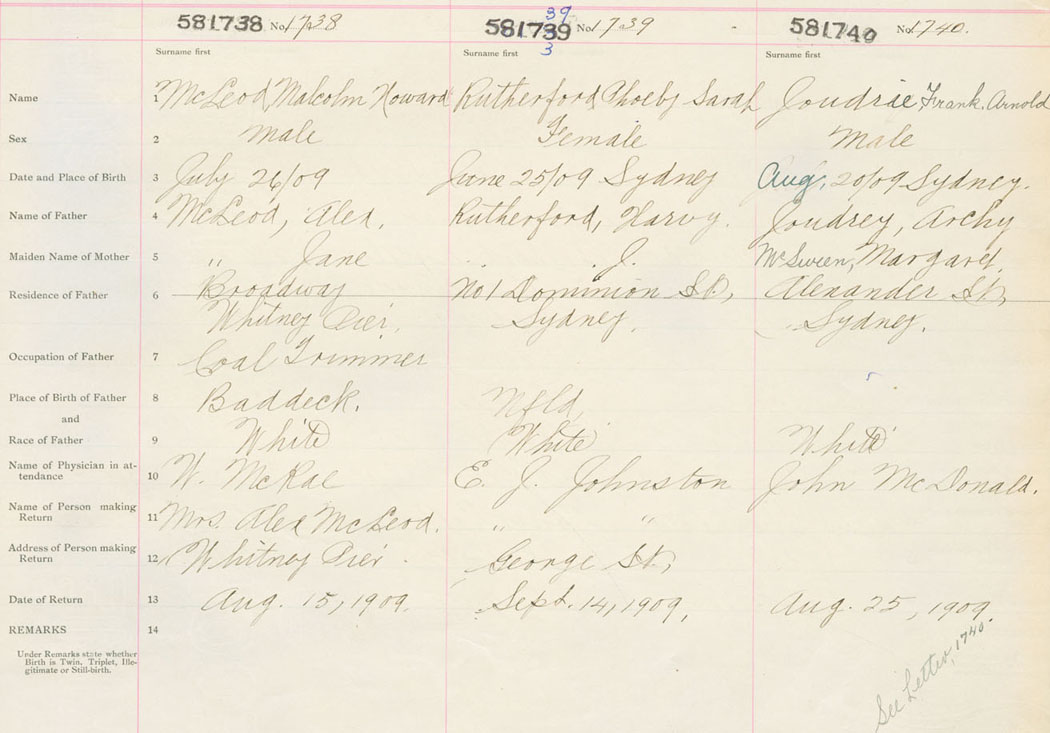 581738 No. 1738 581739 39 3 No. 1739 581740 No. 1740.
Surname first Surname first Surname first
Name 1 McLeod, Malcolm Howard Rutherford, Phoeby Sarah Joudrie Frank. Arnold
Sex 2 Male Female Male
Date and Place of Birth 3 July 26/09 June 25/09 Sydney Aug. 20/09 Sydney.
Name of Father 4 McLeod, Alex. Rutherford, Harvy. Joudrey, Archy
Maiden Name of Mother 5 " Jane J. McSween, Margaret,
Residence of Father 6 Broadway No 1 Dominion St, Alexander St,
Whitney Pier. Sydney. Sydney.
Occupation of Father 7 Coal Trimmer
Place of Birth of Father 8 Baddeck. Nfld,
and
Race of Father 9 White White White
Name of Physician in at-
tendance 10 W. McRae E. J. Johnston John McDonald.
Name of Person making
Return 11 Mrs. Alex McLeod. " "
Address of Person making
Return 12 Whitney Pier. George St,
Date of Return 13 Aug. 15, 1909. Sept. 14, 1909, Aug. 25, 1909.
REMARKS 14
Under Remarks state whether
Birth is Twin, Triplet, Ille-
gitimate or Still-birth.
See Letter, 1740.